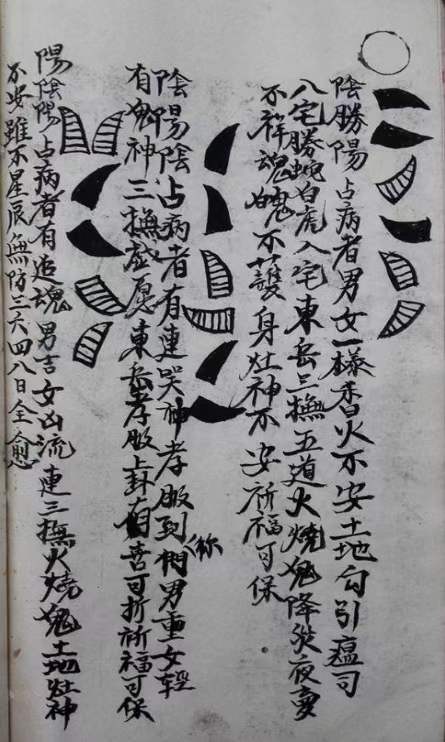 陰勝陽占病者男女一樣香火不安土地勾引瘟司
八宅勝蛇白虎入宅東岳三撫五道火燒鬼降災夜夢
不祥魂魄不護身灶神不安祈福可保
陰陽陰占病者有連哭神孝服到門男重女輕
称
有鬼神三撫舊愿東岳孝服上卦有喜可折祈福可保
陽陰陽占病者有追魂男吉女凶流連三撫火燒鬼土地灶神
不安雖不星辰無防三六四八日全愈